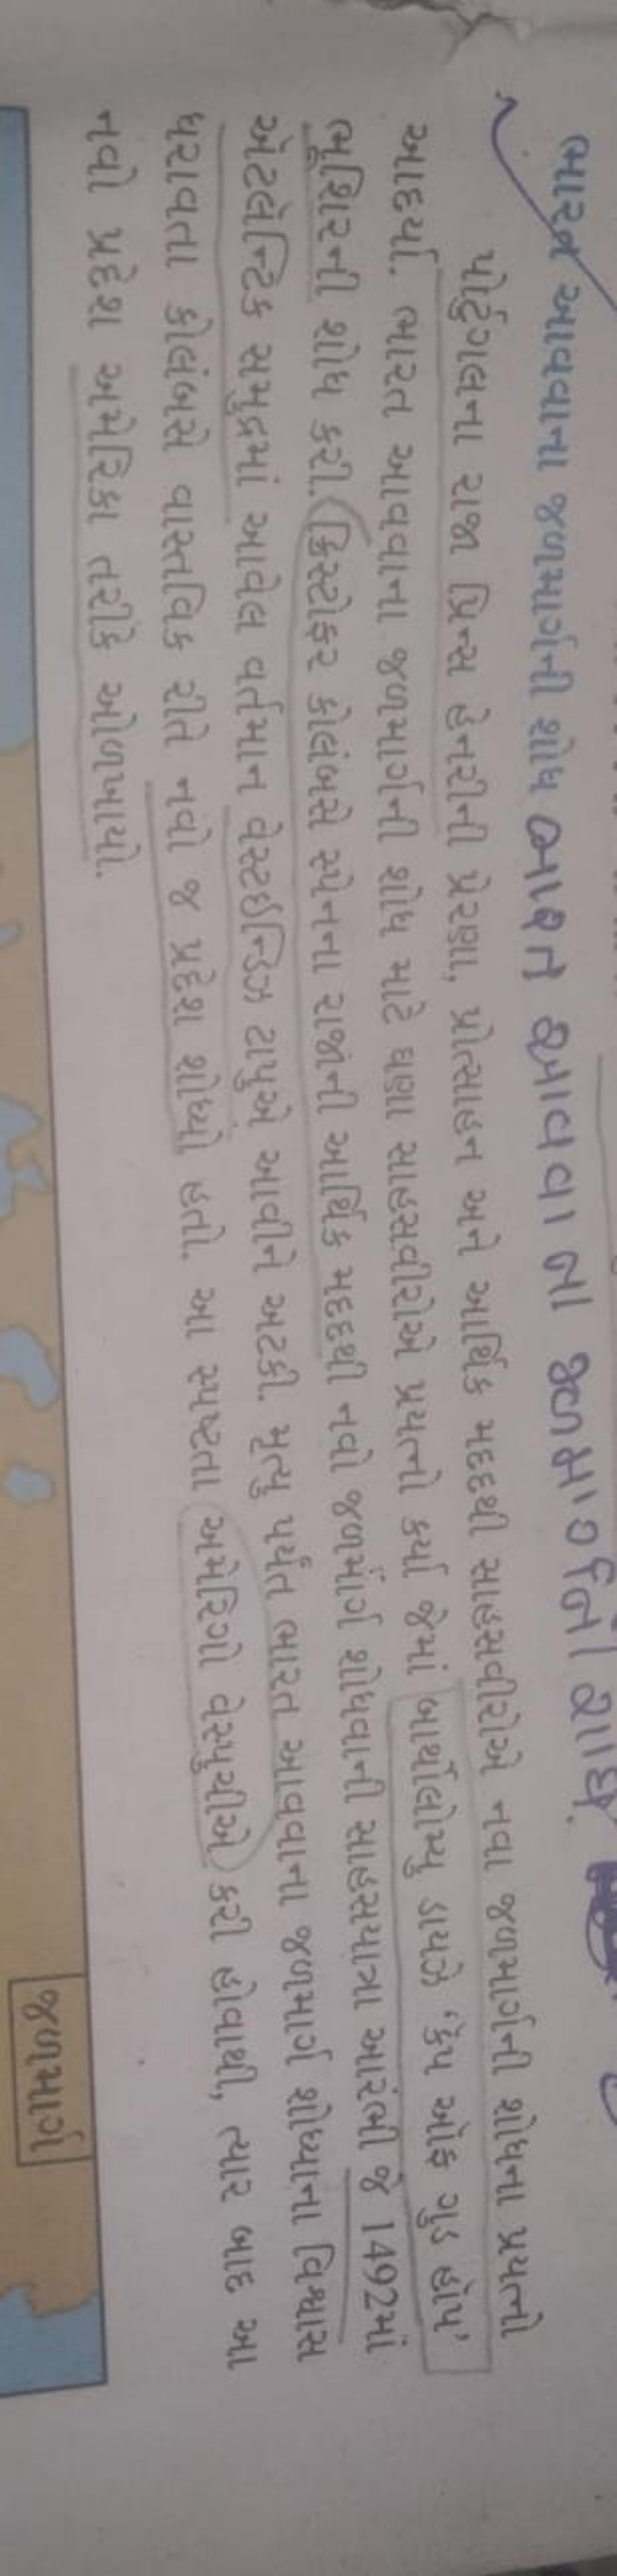 ભારત આવવાના જળમાર્ગની શોધ ભારત આવવા ના જળમાર્ગની શોધ
પોર્ટુગલના રાજા પ્રિન્સ હેનરીની પ્રેરણા, પ્રોત્સાહન અને આર્થિક મદદથી સાહસવીરોએ નવા જળમાર્ગની શોધના પ્રયત્નો
આદર્યા. ભારત આવવાના જળમાર્ગની શોધ માટે ઘણા સાહસવીરોએ પ્રયત્નો કર્યા જેમાં બાર્થોલોમ્યુ ડાયઝે ‘કેપ ઓફ ગુડ હોપ’
ભૂશિરની શોધ કરી. ક્રિસ્ટોફર કોલંબસે સ્પેનના રાજાની આર્થિક મદદથી નવો જળમાર્ગ શોધવાની સાહસયાત્રા આરંભી જે 1492માં
એટલેન્ટિક સમુદ્રમાં આવેલ વર્તમાન વેસ્ટઇન્ડિઝ ટાપુએ આવીને અટકી. મૃત્યુ પર્યંત ભારત આવવાના જળમાર્ગ શોધ્યાના વિશ્વાસ
ધરાવતા કોલંબસે વાસ્તવિક રીતે નવો જ પ્રદેશ શોધ્યો હતો. આ સ્પષ્ટતા અમેરિગો વેસ્પૂચીએ કરી હોવાથી, ત્યાર બાદ આ
નવો પ્રદેશ અમેરિકા તરીકે ઓળખાયો.
જળમાર્ગ